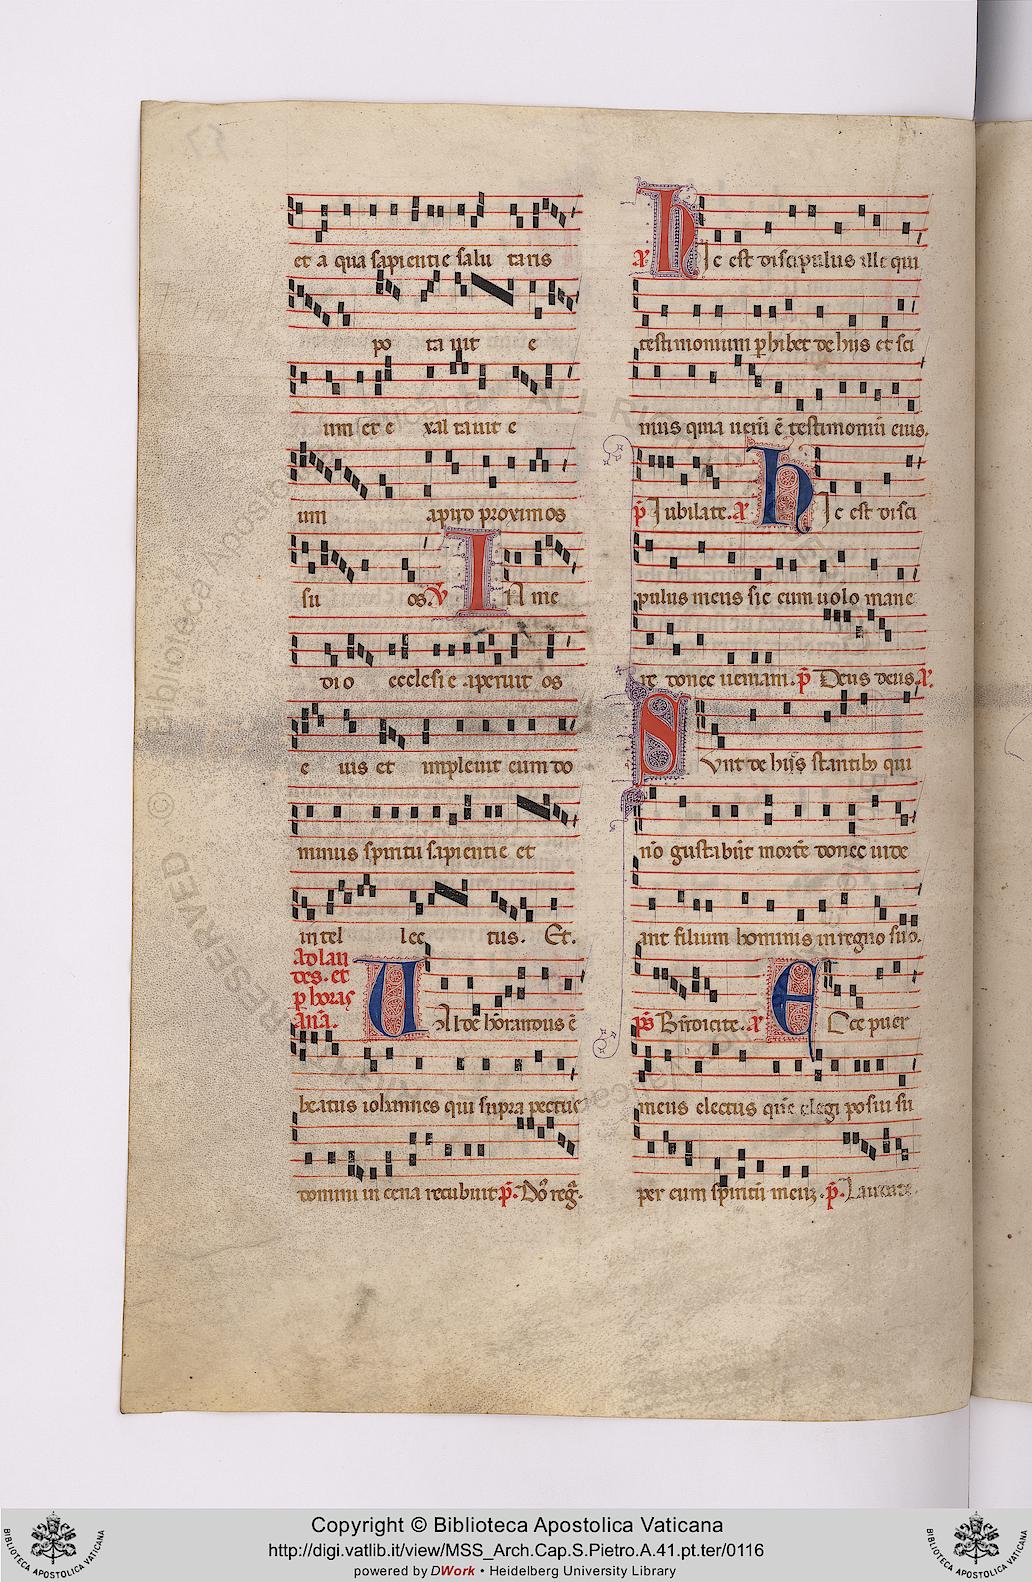 et a qua sapientie salu taris
po ta uit e
um et e xal tauit e
um apud proximos
su os. V IN me
dio ecclesie aperuit os
e ius et impleuit eum do
minus spiritu sapientie et
intel lec tus. Et.
Ad lau
des. et
p horas
anã.
VAlde hõrandus ẽ
beatus iohannes qui supra pectus
domini in cena recubuit. p̃. Dõ reg̃.
a HIc est discipulus ille qui
testimonium phibet de hiis et sci
mus quia uerũ ẽ testimoniũ eius.
p̃ Iubilate. a HIc est disci
pulus meus sic eum uolo mane
re donec ueniam. p̃ Deus deus. a
SVnt de hiis stantibꝫ qui
nõ gustabũt mortẽ donec uide
ant filium hominis in regno suo.
p̃s Bñdicite. a ECce puer
meus electus quẽ elegi posui su
per eum spiritũ meuꝫ. p̃. Laudate.
Copyright © Biblioteca Apostolica Vaticana
http://digi.vatlib.it/view/MSS_Arch.Cap.S.Pietro.A.41.pt.ter/0116
powered by DWork • Heidelberg University Library
BIBLIOTECA APOSTOLICA VATICANA
BIBLIOTECA APOSTOLICA VATICANA